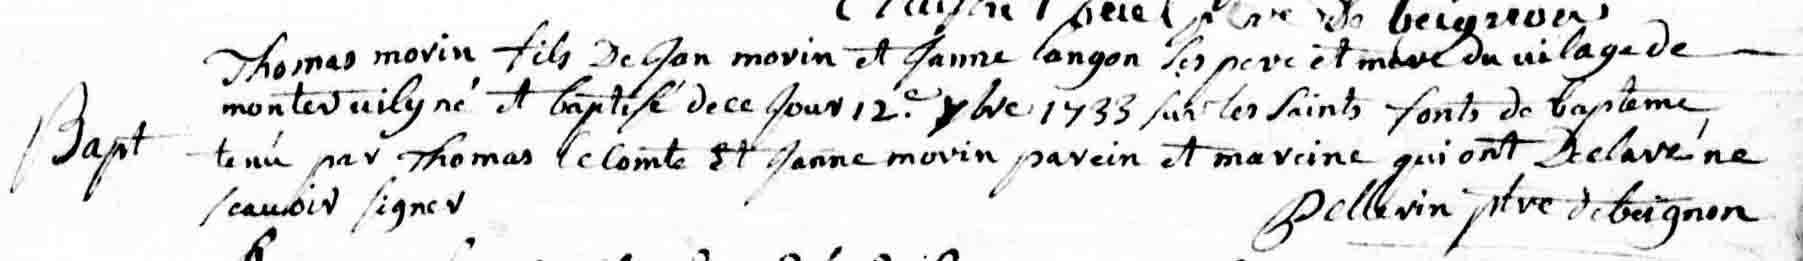 beignon
Thomas morin fils De Jan morin et Janne langon ses pere et mere du vilage de
montervily né et baptisé de ce Jour 12.e 7bre 1733 sur les saints fonts de bapteme
Bapt
tenu par Thomas le Comte Et Janne morin parein et mareine qui ont Declaré ne
scauoir signer
Pellerin ptre de beignon